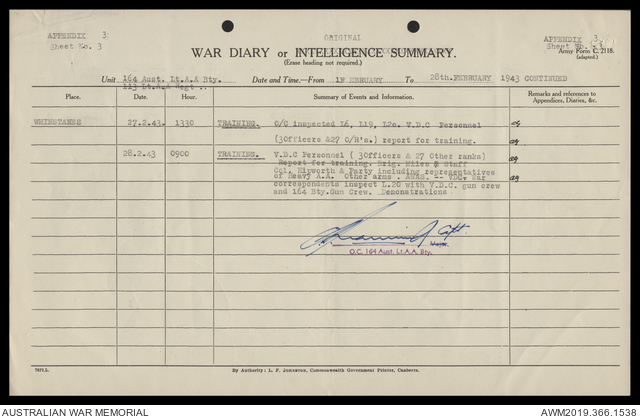 ORIGINAL
APPENDIX 3
Sheet No. 3
APPENDIX 3
Sheet No. 3
WAR DIARY or INTELLIGENCE SUMMARY.
(Erase heading not required.)
Army Form C. 2118.
(adapted.)
Unit 164 Aust. Lt.A.A Bty.
113 Lt.A.A Regt ..
Date and Time.—From 1F FEBRUARY To 28th.FEBRUARY 1943 CONTINUED
Place.
Date.
Hour.
Summary of Events and Information.
Remarks and references to
Appendices, Diaries, &c.
WHINSTANES 27.2.43 1330 TRAINING. O/C inspected L6, L19, L2o. V.D.C Personnel
(3Officers &27 O/R's.) report for training.
28.2.43 0900 TRAINING. V.D.C Personnel ( 3Officers & 27 Other ranks)
Report for training. Brig. Miles & Staff
Col. Hipworth & Party including representatives
of Heavy A.A. Other arms . AWAS. -- VDC. War
correspondents inspect L.20 with V.D.C. gun crew
and 164 Bty.Gun Crew. Demonstrations
Capt.
Major.
O.C. 164 Aust. Lt.A.A. Bty.
7075.L.
By Authority: L. F. Johnston, Commonwealth Government Printer, Canberra.
AUSTRALIAN WAR MEMORIAL
AWM2019.366.1538